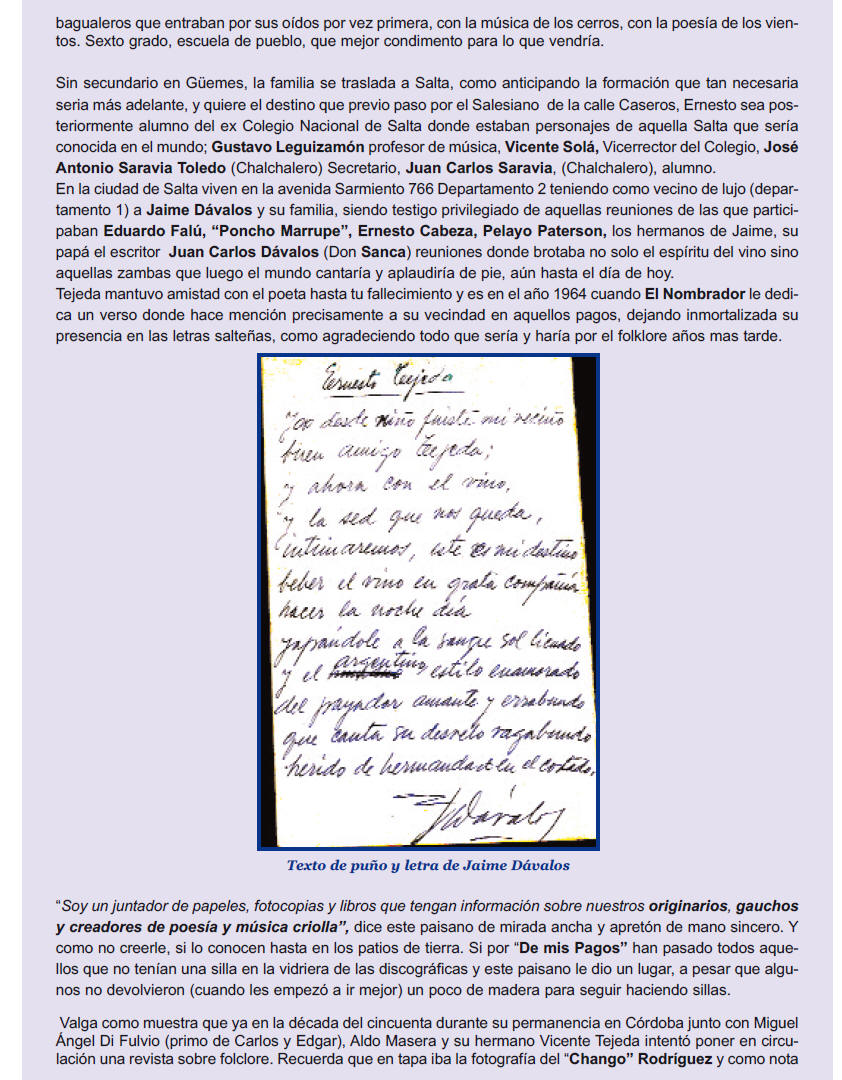 bagualeros que entraban por sus oídos por vez primera, con la música de los cerros, con la poesía de los vien-
tos. Sexto grado, escuela de pueblo, que mejor condimento para lo que vendría.
Sin secundario en Güemes, la familia se traslada a Salta, como anticipando la formación que tan necesaria
seria más adelante, y quiere el destino que previo paso por el Salesiano de la calle Caseros, Ernesto sea pos-
teriormente alumno del ex Colegio Nacional de Salta donde estaban personajes de aquella Salta que sería
conocida en el mundo; Gustavo Leguizamón profesor de música, Vicente Solá, Vicerrector del Colegio, José
Antonio Saravia Toledo (Chalchalero) Secretario, Juan Carlos Saravia, (Chalchalero), alumno.
En la ciudad de Salta viven en la avenida Sarmiento 766 Departamento 2 teniendo como vecino de lujo (depar-
tamento 1) a Jaime Dávalos y su familia, siendo testigo privilegiado de aquellas reuniones de las que partici-
paban Eduardo Falú, “Poncho Marrupe”, Ernesto Cabeza, Pelayo Paterson, los hermanos de Jaime, su
papá el escritor Juan Carlos Dávalos (Don Sanca) reuniones donde brotaba no solo el espíritu del vino sino
aquellas zambas que luego el mundo cantaría y aplaudiría de pie, aún hasta el día de hoy.
Tejeda mantuvo amistad con el poeta hasta tu fallecimiento y es en el año 1964 cuando El Nombrador le dedi-
ca un verso donde hace mención precisamente a su vecindad en aquellos pagos, dejando inmortalizada su
presencia en las letras salteñas, como agradeciendo todo que sería y haría por el folklore años mas tarde.
Ernesto Tejeda
desde niño fuiste mi vecino
buen amigo Tejeda;
y ahora con el vino,
y la sed que nos queda,
intimaremos, este es mi destino
beber el vino en grata compañía
hacer la noche día
yapándole a la sangre sol licuado
y el argentino estilo enamorado
del payador amante y errabundo
que canta su desvelo vagabundo
herido de hermandad en el costado.
JDávalos
Texto de puño y letra de Jaime Dávalos
“Soy un juntador de papeles, fotocopias y libros que tengan información sobre nuestros originarios, gauchos
y creadores de poesía y música criolla”, dice este paisano de mirada ancha y apretón de mano sincero. Y
como no creerle, si lo conocen hasta en los patios de tierra. Si por “De mis Pagos” han pasado todos aque-
llos que no tenían una silla en la vidriera de las discográficas y este paisano le dio un lugar, a pesar que algu-
nos no devolvieron (cuando les empezó a ir mejor) un poco de madera para seguir haciendo sillas.
Valga como muestra que ya en la década del cincuenta durante su permanencia en Córdoba junto con Miguel
Ángel Di Fulvio (primo de Carlos y Edgar), Aldo Masera y su hermano Vicente Tejeda intentó poner en circu-
lación una revista sobre folclore. Recuerda que en tapa iba la fotografía del “Chango” Rodríguez y como nota